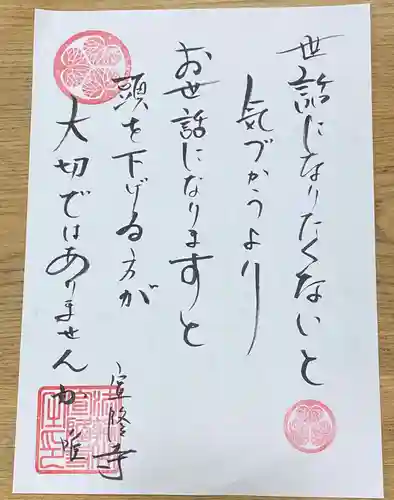 世話になりたくないと
気づかうより
お世話になりますと
頭を下げる方が
大切ではありませんか
宣隆寺